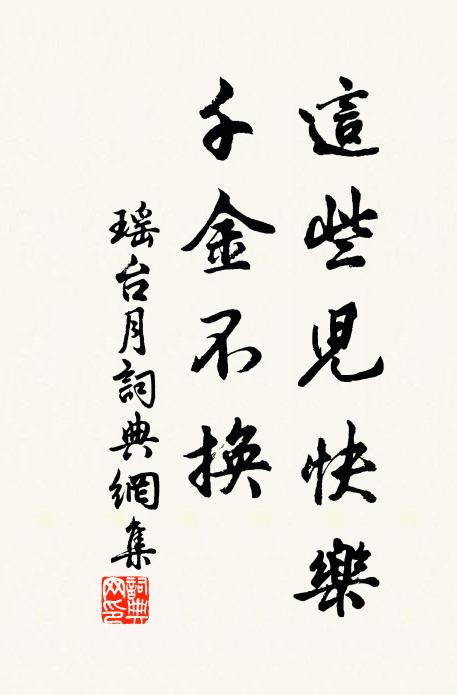 這些兒快樂
千金不換
瑶台月詞典網集
詞典
网印